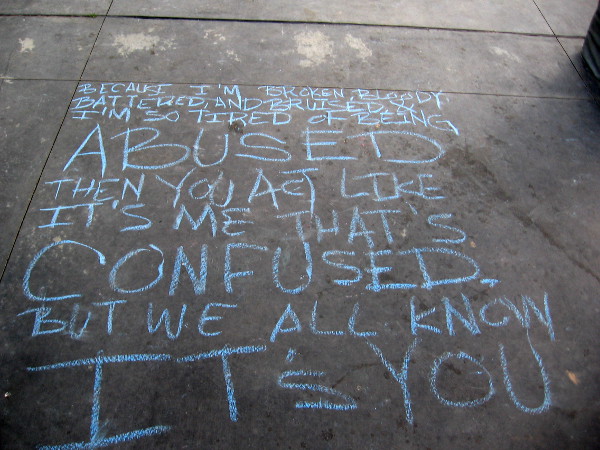 BECAUSE I'M BROKEN, BLOODY,
BATTERED, AND BRUISED, &
I'M SO TIRED OF BEING
ABUSED
THEN YOU ACT LIKE
IT'S ME THAT'S
CONFUSED.
BUT WE ALL KNOW
IT'S YOU